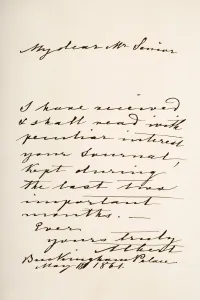 My dear Mr Senior
I have received
& shall read with
peculiar interest
your Journal,
kept during
the last two
important
months. —
Ever
yours truly
Albert
Buckingham Palace
May 1861.